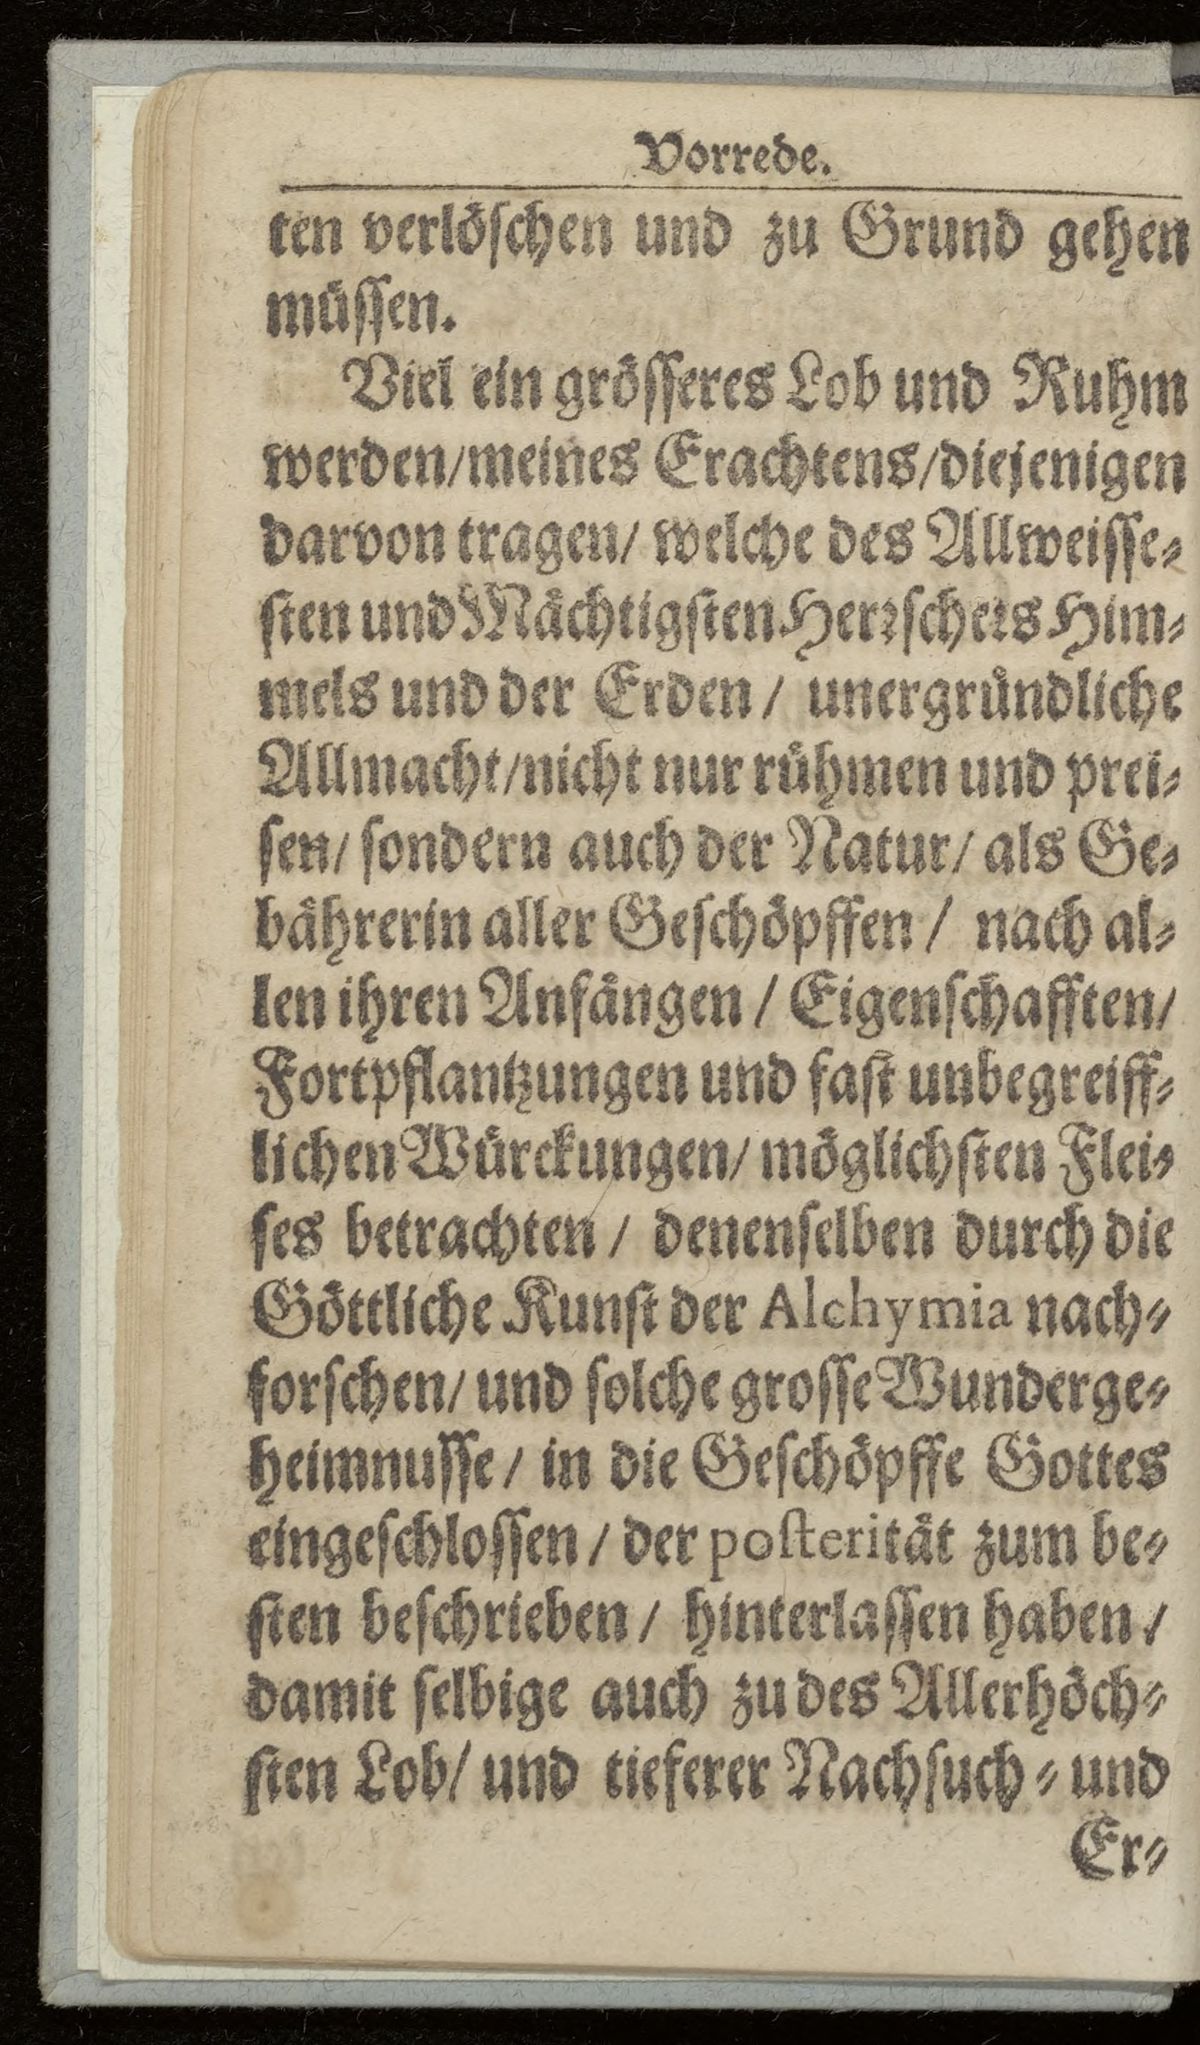 Vorrede.
ten verlöschen und zu Grund gehen
müssen.
Viel ein grösseres Lob und Ruhm
werden/meines Erachtens/diejenigen
darvon tragen/ welche des Allweisse-
sten und Mächtigsten Herrschers Him-
mels und der Erden / unergründliche
Allmacht/nicht nur rühmen und prei-
sen/ sondern auch der Natur/ als Ge-
bährerin aller Geschöpffen / nach al-
len ihren Anfängen / Eigenschafften/
Fortpflantzungen und fast unbegreiff-
lichen Würckungen/ möglichsten Flei-
ses betrachten / denenselben durch die
Göttliche Kunst der Alchymia nach-
forschen/ und solche grosse Wunderge-
heimnusse / in die Geschöpffe Gottes
eingeschlossen / der posterität zum be-
sten beschrieben / hinterlassen haben /
damit selbige auch zu des Allerhöch-
sten Lob/ und tieferer Nachsuch- und
Er-